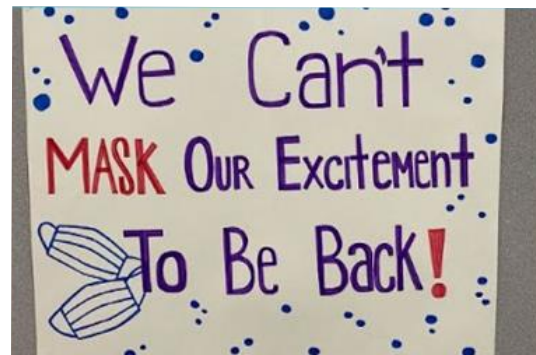 We Can't
MASK Our Excitement
To Be Back!